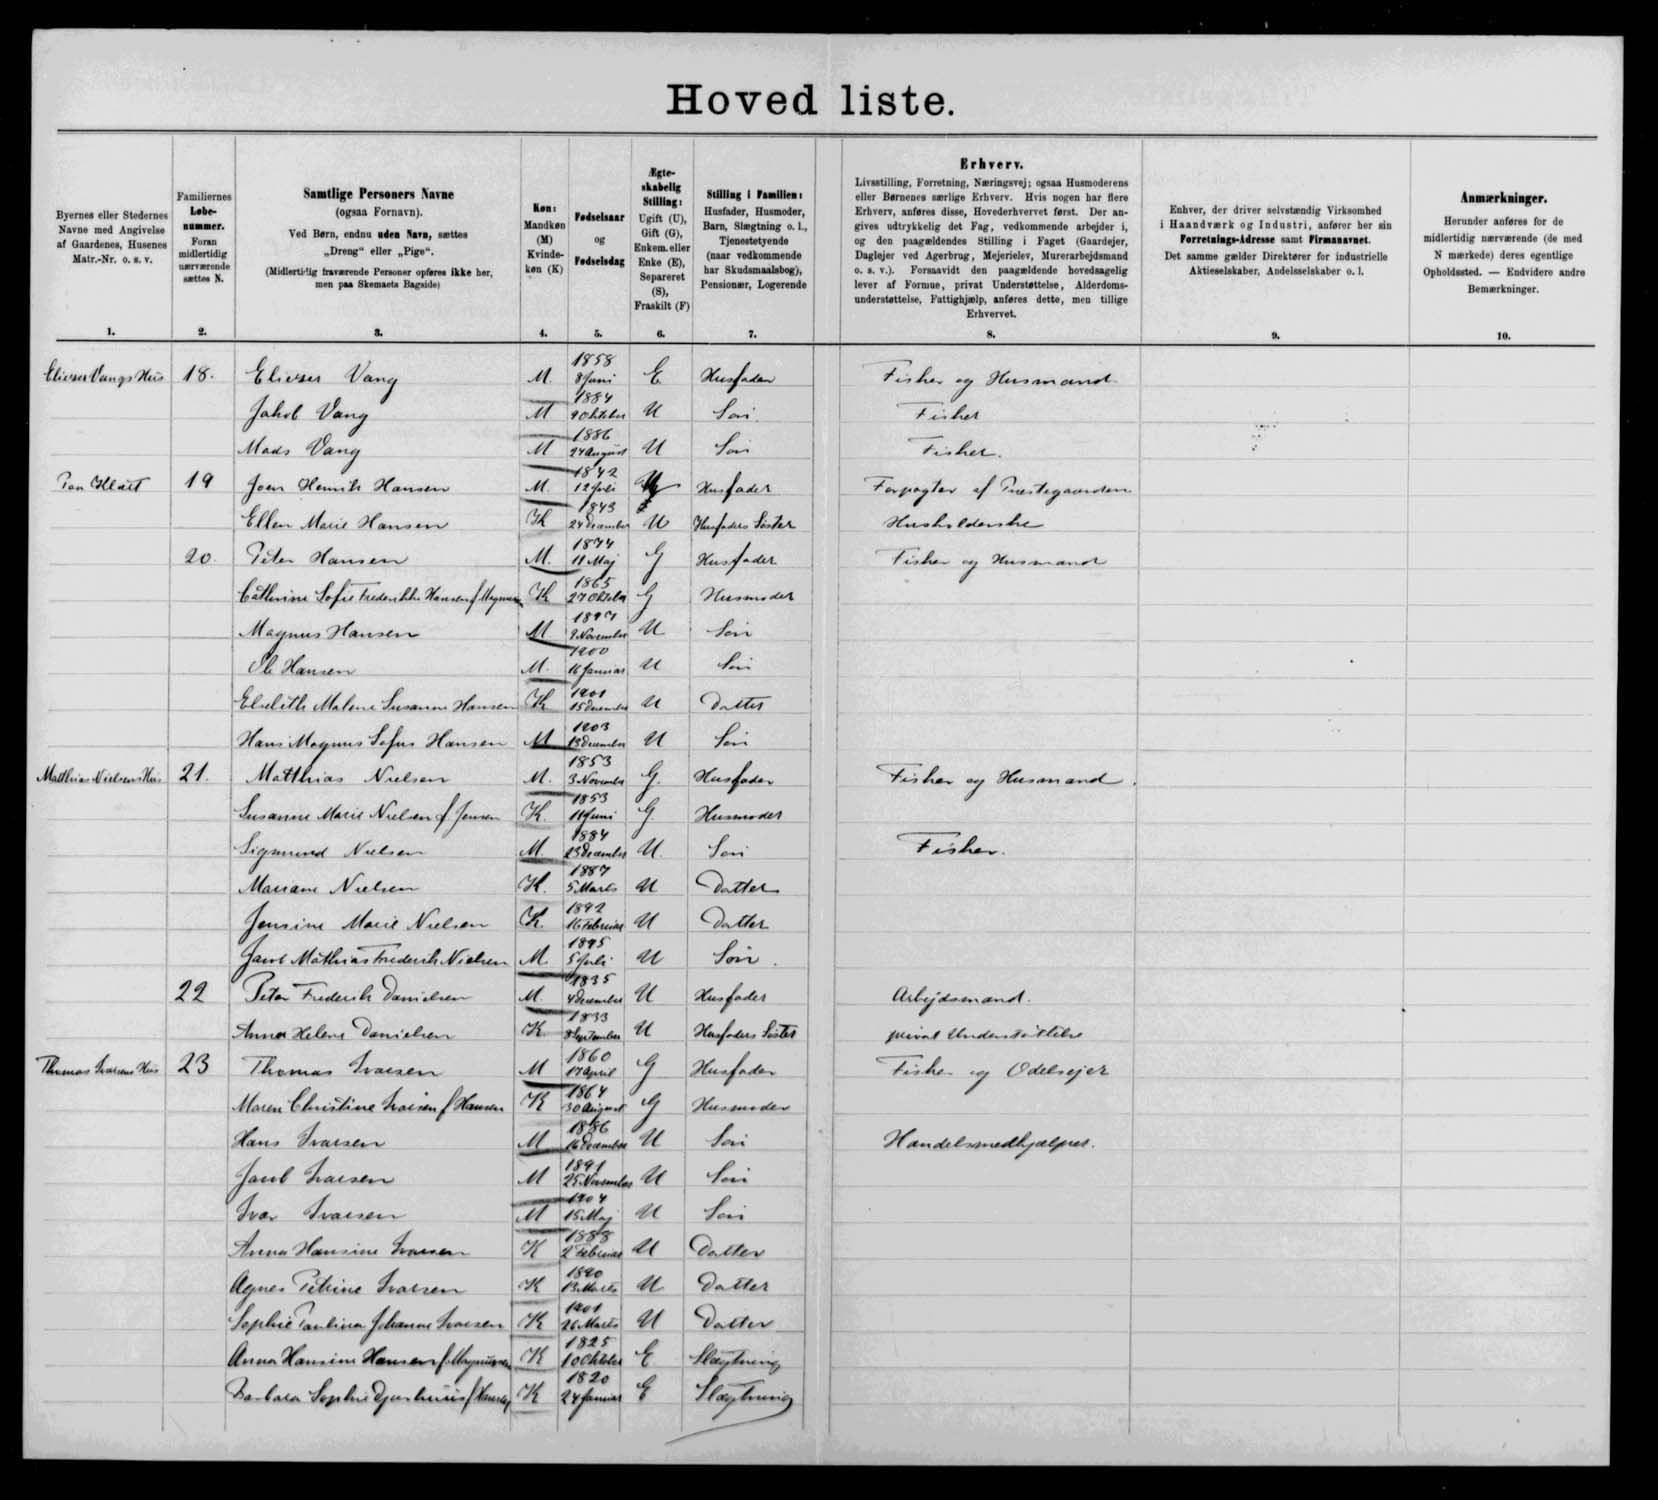 Hoved liste.
Byernes eller Stedernes Navne med Angivelse af Gaardenes, Husenes Matr.-Nr. o. s. v.
Familiernes Løbenummer. Foran midlertidig nærværende sættes N.
Samtlige Personers Navne
(ogsaa Fornavn).
Ved Børn, endnu uden Navn, sættes
„Dreng“ eller „Pige“.
(Midlertidig fraværende Personer opføres ikke her, men paa Skemaets Bagside)
Køn: Mandkøn (M) Kvindekøn (K)
Fødselsaar og Fødselsdag
Ægteskabelig Stilling: Ugift (U), Gift (G), Enkem. eller Enke (E), Separeret (S), Fraskilt (F)
Stilling i Familien: Husfader, Husmoder, Barn, Slægtning o. l., Tjenestetyende (naar vedkommende har Skudsmaalsbog), Pensionær, Logerende
Erhverv.
Livsstilling, Forretning, Næringsvej; ogsaa Husmoderens
eller Børnenes særlige Erhverv. Hvis nogen har flere
Erhverv, anføres disse, Hovederhvervet først. Der an-
gives udtrykkelig det Fag, vedkommende arbejder i,
og den paagældendes Stilling i Faget (Gaardejer,
Daglejer ved Agerbrug, Mejerielev, Murerarbejdsmand
o. s. v.). Forsaavidt den paagældende hovedsagelig
lever af Formue, privat Understøttelse, Alderdoms-
understøttelse, Fattighjælp, anføres dette, men tillige
Erhvervet.
Enhver, der driver selvstændig Virksomhed
i Haandværk og Industri, anfører her sin
Forretnings-Adresse samt Firmanavnet.
Det samme gælder Direktører for industrielle
Aktieselskaber, Andelsselskaber o. l.
Anmærkninger.
Herunder anføres for de
midlertidig nærværende (de med
N mærkede) deres egentlige
Opholdssted. — Endvidere andre
Bemærkninger.
1. 2. 3. 4. 5. 6. 7. 8. 9. 10.
Elieser Vangs Hus 18. Elieser Vang M. 1858 8 Juni E. Husfader Fisker og Husmand
Jakob Vang M 1884 9 Oktober U Søn Fisker
Mads Vang M 1886 24 August U Søn Fisker.
19 Joen Henrik Hansen M. 1842 12 Juli Husfader Forpagter af Præstegaarden
Ellen Marie Hansen K 1843 24 December U Husfaders Søster Husholderske
20. Peter Hansen M. 1874 11 Maj G Husfader Fisker og Husmand
Cathrine Sofie Frederikke Hansen f. K 1865 27 Oktober G Husmoder
Magnus Hansen M 1897 9 November U Søn
Ole Hansen M. 1900 16 Januar U Søn
Elsebeth Malene Susanne Hansen K 1901 15 December U Datter
Hans Magnus Sofus Hansen M 1903 13 December U Søn
Matthias Nielsens Hus 21. Matthias Nielsen M. 1853 3 November G. Husfader Fisker og Husmand
Susanne Marie Nielsen f. Jensen K. 1853 11 Juni G Husmoder
Sigmund Nielsen M. 1884 23 December U. Søn Fisker.
Mariane Nielsen K. 1887 5 Marts U Datter
Jensine Marie Nielsen K. 1892 16 Februar U Datter
Jacob Mathias Frederik Nielsen M. 1895 5 Juli U Søn.
22 Peter Frederik Danielsen M. 1835 4 December U Husfader Arbejdsmand.
Anna Helene Danielsen K 1833 8 September U Husfaders Søster privat Understøttelse
Thomas Ivarsens Hus 23 Thomas Ivarsen M 1860 17 April G Husfader Fisker og Odelsejer
Maren Christine Ivarsen f. Hansen K 1864 30 August G Husmoder
Hans Ivarsen M 1886 16 December U Søn Handelsmedhjælper.
Jacob Ivarsen M 1891 25 November U Søn
Ivar Ivarsen M 1904 15 Maj U Søn
Anna Hansine Ivarsen K 1888 2 Februar U Datter
Agnes Petrine Ivarsen K 1890 13 Marts U Datter
Sophie Paulina Johanne Ivarsen K 1901 26 Marts U Datter
Anna Hansine Hansen f. Magnussen K 1825 10 Oktober E Slægtning
Barbara Sophie Djurhuus f. K 1820 24 Januar E Slægtning